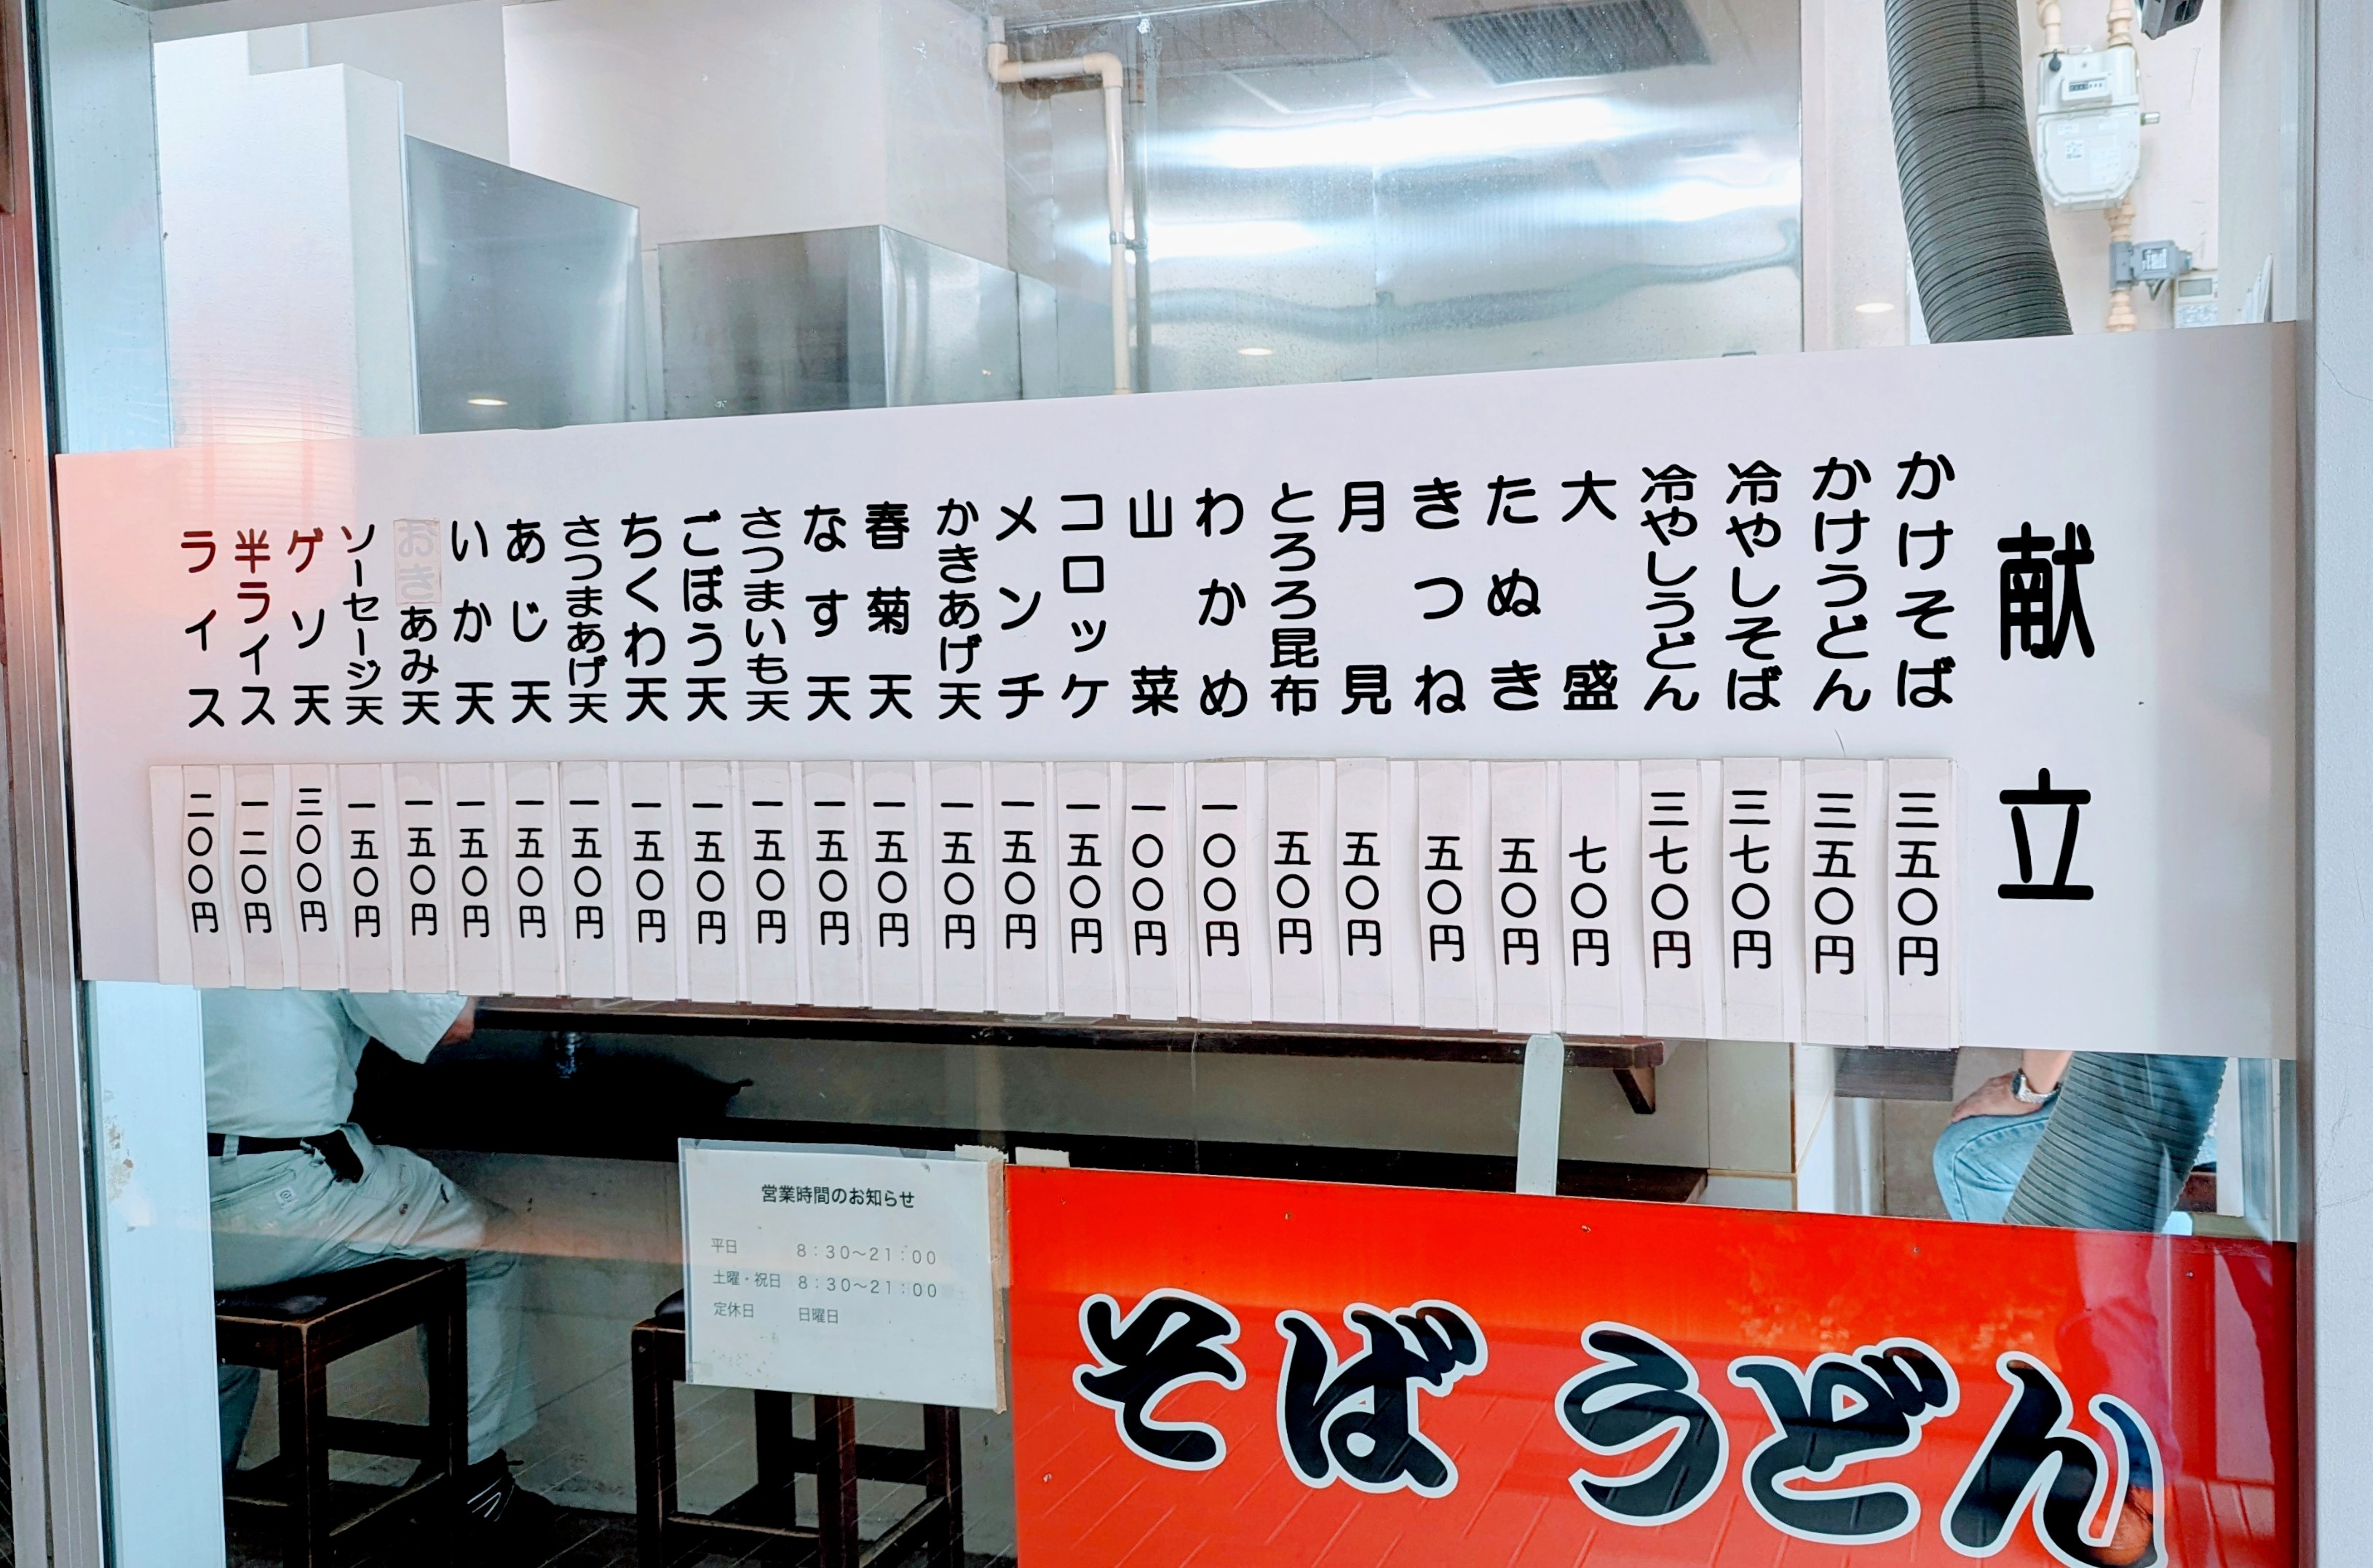 献立
かけそば 三五〇円
かけうどん 三五〇円
冷やしそば 三七〇円
冷やしうどん 三七〇円
大盛 七〇円
たぬき 五〇円
きつね 五〇円
月見 五〇円
とろろ昆布 五〇円
わかめ 一〇〇円
山菜 一〇〇円
コロッケ 一五〇円
メンチ 一五〇円
かきあげ天 一五〇円
春菊天 一五〇円
なす天 一五〇円
さつまいも天 一五〇円
ごぼう天 一五〇円
ちくわ天 一五〇円
さつまあげ天 一五〇円
あじ天 一五〇円
いか天 一五〇円
あみ天 一五〇円
ソーセージ天 一五〇円
ゲソ天 三〇〇円
半ライス 一二〇円
ライス 二〇〇円
営業時間のお知らせ
平日 8:30～21:00
土曜・祝日 8:30～21:00
定休日 日曜日
そば うどん